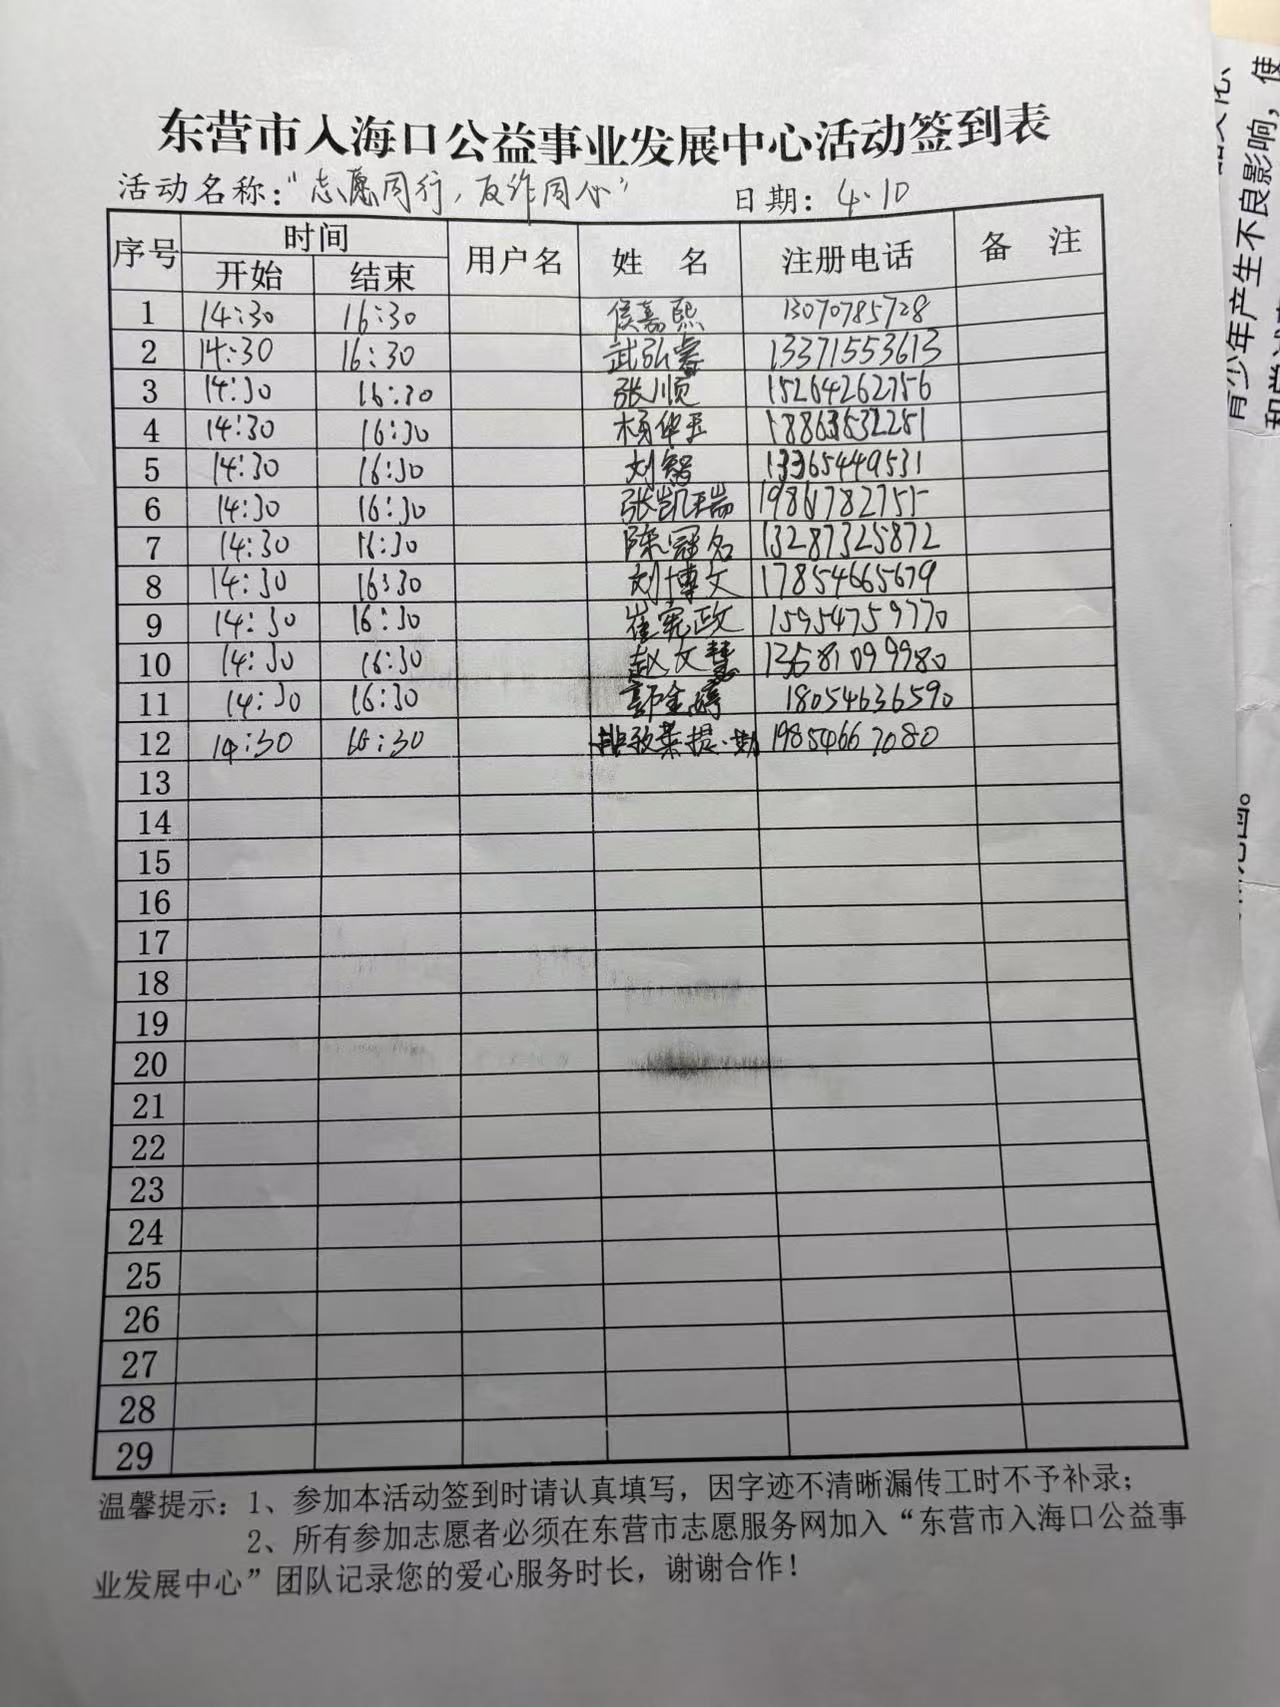 东营市入海口公益事业发展中心活动签到表
活动名称：“志愿同行，反诈同心” 日期：4.10
序号 时间 用户名 姓 名 注册电话 备 注
开始 结束
1 14:30 16:30 侯嘉熙 13070785728
2 14:30 16:30 武弘睿 13371553613
3 14:30 16:30 张顺 15264262756
4 14:30 16:30 杨华玉
5 14:30 16:30 刘智 13365449531
6 14:30 16:30 张凯瑞
7 14:30 16:30 陈冠名 13287325872
8 14:30 16:30 刘博文 17854665679
9 14:30 16:30 崔宪政 15954759770
10 14:30 16:30 赵文慧
11 14:30 16:30 18054636590
12 14:30 16:30 19854667080
13
14
15
16
17
18
19
20
21
22
23
24
25
26
27
28
29
温馨提示：1、参加本活动签到时请认真填写，因字迹不清晰漏传工时不予补录；
2、所有参加志愿者必须在东营市志愿服务网加入“东营市入海口公益事
业发展中心”团队记录您的爱心服务时长，谢谢合作！
青少年产生不良影响，使